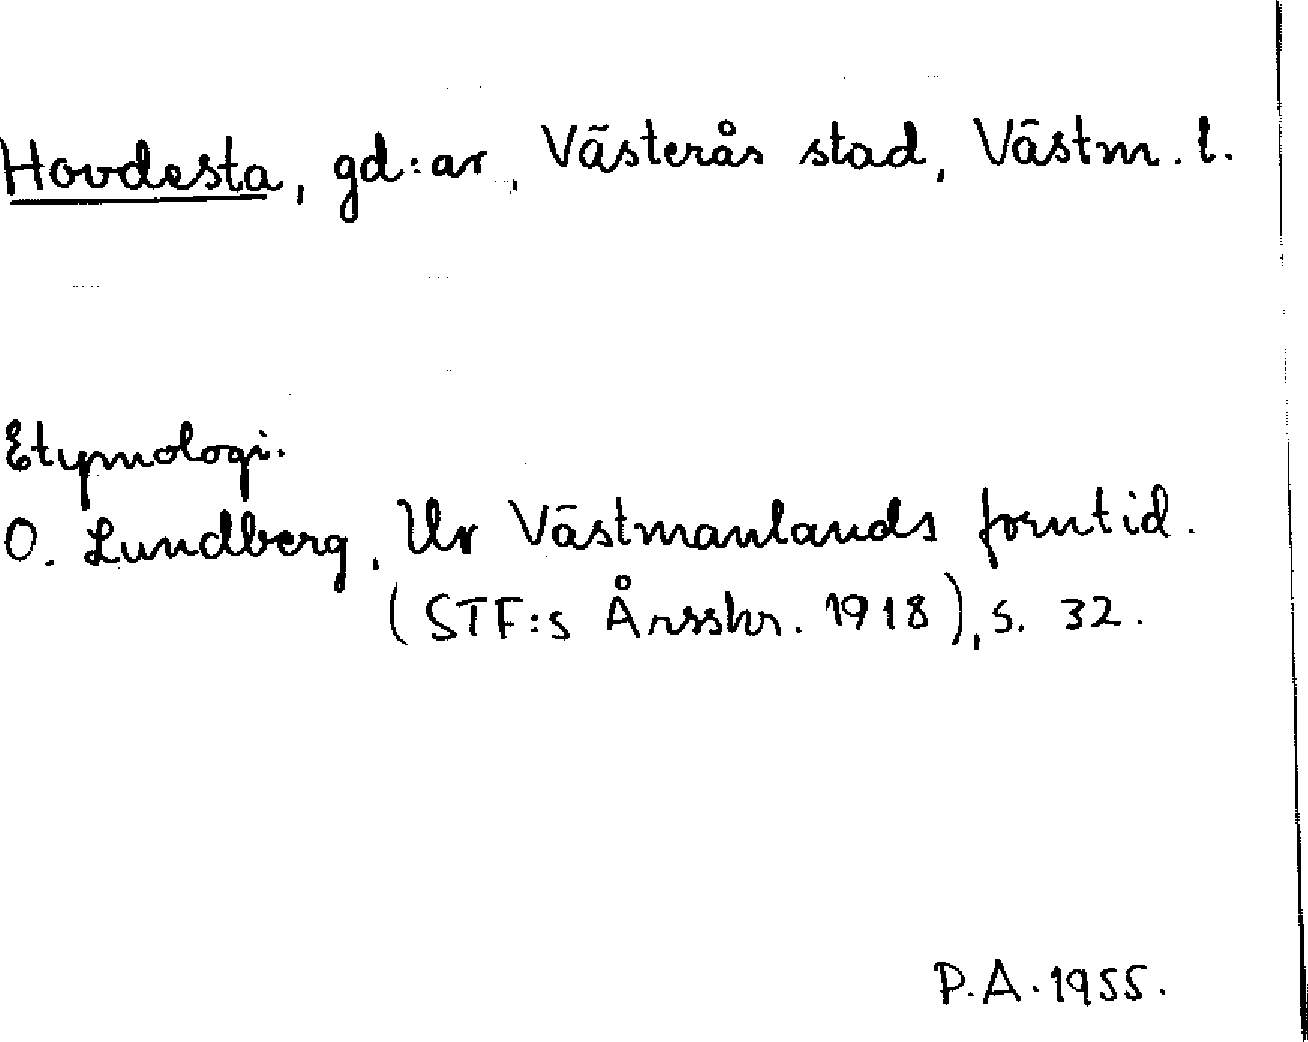 Hovdesta, gd:ar, Västerås stad, Västm. l.
Etymologi.
O. Lundberg, Ur Västmanlands forntid.
(STF:s Årsskr. 1918), s. 32.
P.A. 1955.